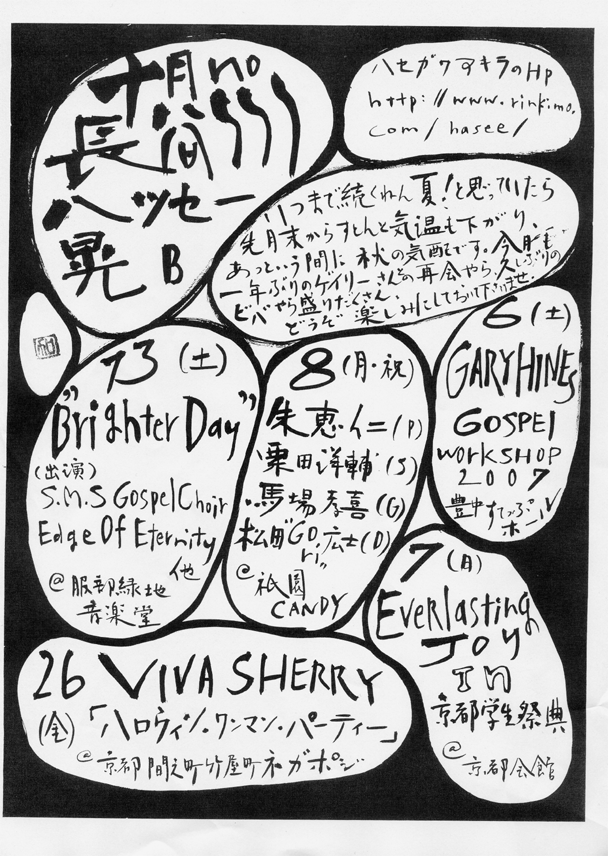 十月no
長谷川
ハッセー
晃 B
ハセガワアキラのHP
http://www.rinkimo.
com/hasee/
いつまで続くねん夏!と思っていたら
先月末からすとんと気温も下がり、
あっという間に秋の気配です。今月も
一年ぶりのゲイリーさんとの再会やら、久しぶりの
ビバやら盛りだくさん、
どうぞ楽しみにしておいて下さいませ。
6(土)
GARY HINES
GOSPEL
WORKSHOP
2007
豊中すてっぷ
ホール
7(月)
Everlasting
JOY
IN
京都学生祭典
@
京都会館
8(月・祝)
朱恵仁(P)
栗田洋輔(S)
馬場孝喜(G)
松田"GORI"広士(D)
@祇園
CANDY
13(土)
"Brighter Day"
(出演)
S.M.S Gospel Choir
Edge Of Eternity
他
@服部緑地
音楽堂
26 VIVA SHERRY
(金)「ハロウィン・ワンマン・パーティー」
@京都間之町竹屋町ネガポジ